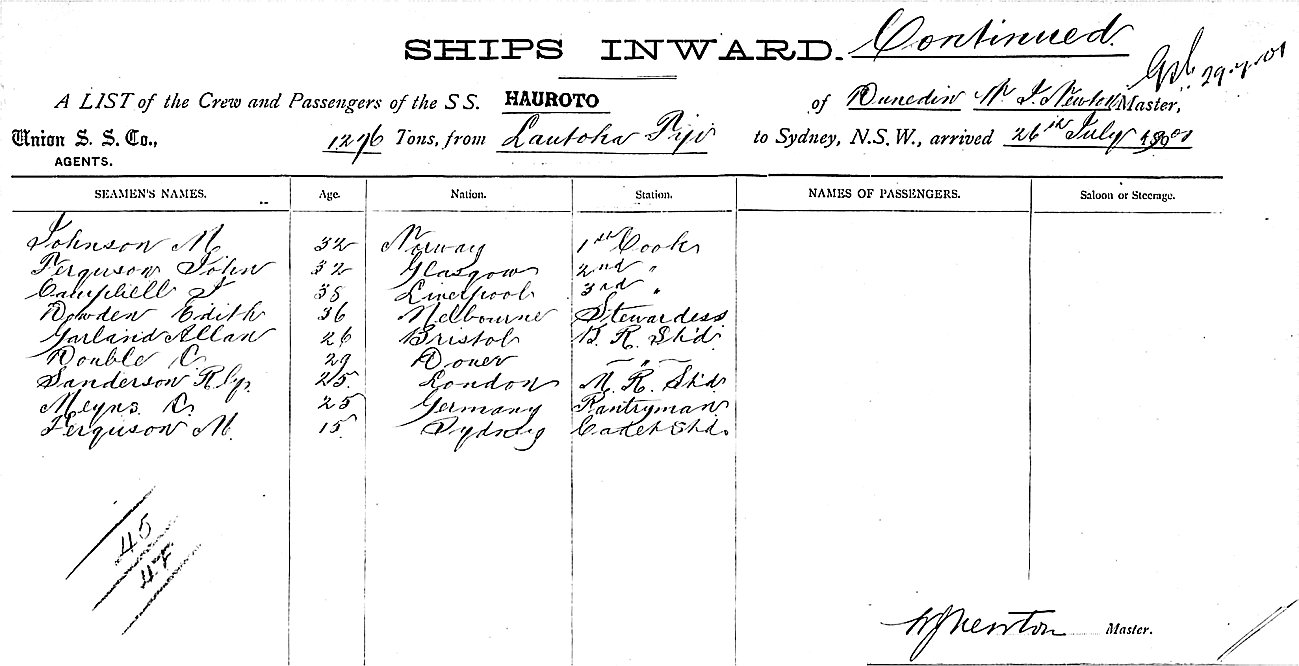 SHIPS INWARD. Continued.
29.7.01
A LIST of the Crew and Passengers of the S S. HAUROTO of Dunedin W. J. Newton Master,
Union S. S. Co., AGENTS. 1276 Tons, from Lautoka Fiji to Sydney, N.S.W., arrived 26th July 1901
SEAMEN'S NAMES. Age. Nation. Station. NAMES OF PASSENGERS. Saloon or Steerage.
Johnson M 32 Norway 1st Cook
Ferguson John 32 Glasgow 2nd "
Campbell J 35 Liverpool 3rd "
Dowden Edith 36 Melbourne Stewardess
Garland Allan 26 Bristol B. R. Std.
Double C. 29 Dover "
Sanderson 25. London M. R. Std.
Meyns. C. 25 Germany Pantryman
Ferguson M. 15 Sydney Cadet Std.
45
47
WJNewton Master.